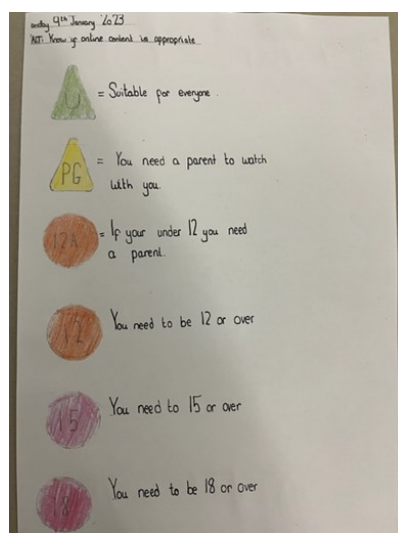 9th January 2023
Know if online content is appropriate
U
= Suitable for everyone.
PG
= You need a parent to watch
with you.
12A
= If your under 12 you need
a parent.
12
You need to be 12 or over
15
You need to 15 or over
18
You need to be 18 or over